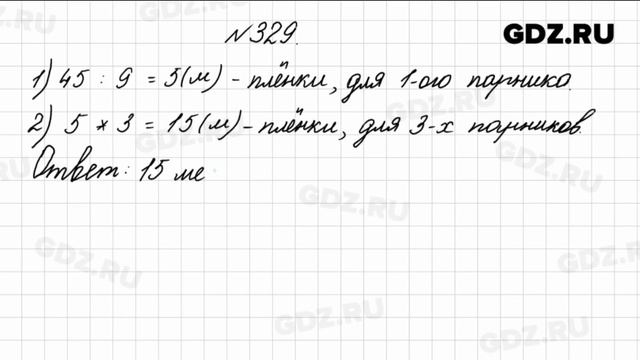 №329.
GDZ.RU
1) 45 : 9 = 5(м) - плёнки, для 1-ого парника.
2) 5 * 3 = 15(м) - плёнки, для 3-х парников.
Ответ: 15 ме
GDZ.RU
GDZ.RU
GDZ.RU
GDZ.RU
GDZ.RU
GDZ.RU
GDZ.RU